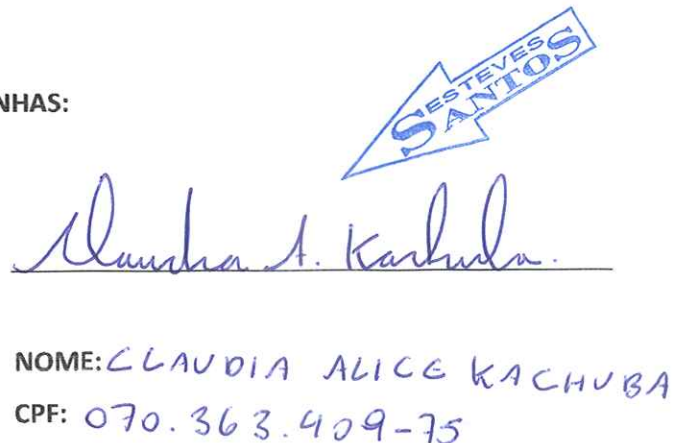 ESTEVES
SANTOS
NHAS:
Claudia A. Kachuba.
NOME: CLAUDIA ALICE KACHUBA
CPF: 070.363.409-75